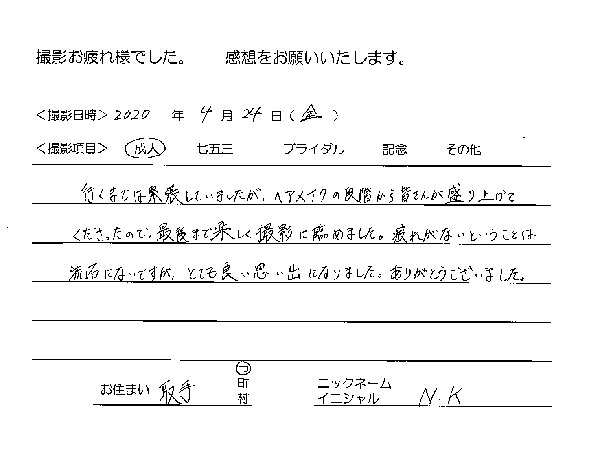 撮影お疲れ様でした。 感想をお願いいたします。
＜撮影日時＞ 2020 年 4 月 24 日 ( 金 )
＜撮影項目＞ 成人 七五三 ブライダル 記念 その他
行くまでは緊張していましたが、ヘアメイクの段階から皆さんが盛り上げて
くださったので、最後まで楽しく撮影に臨めました。疲れがないということは
流石にないですが、とても良い思い出になりました。ありがとうございました。
お住まい 取手 市 町 村
ニックネーム イニシャル N.K